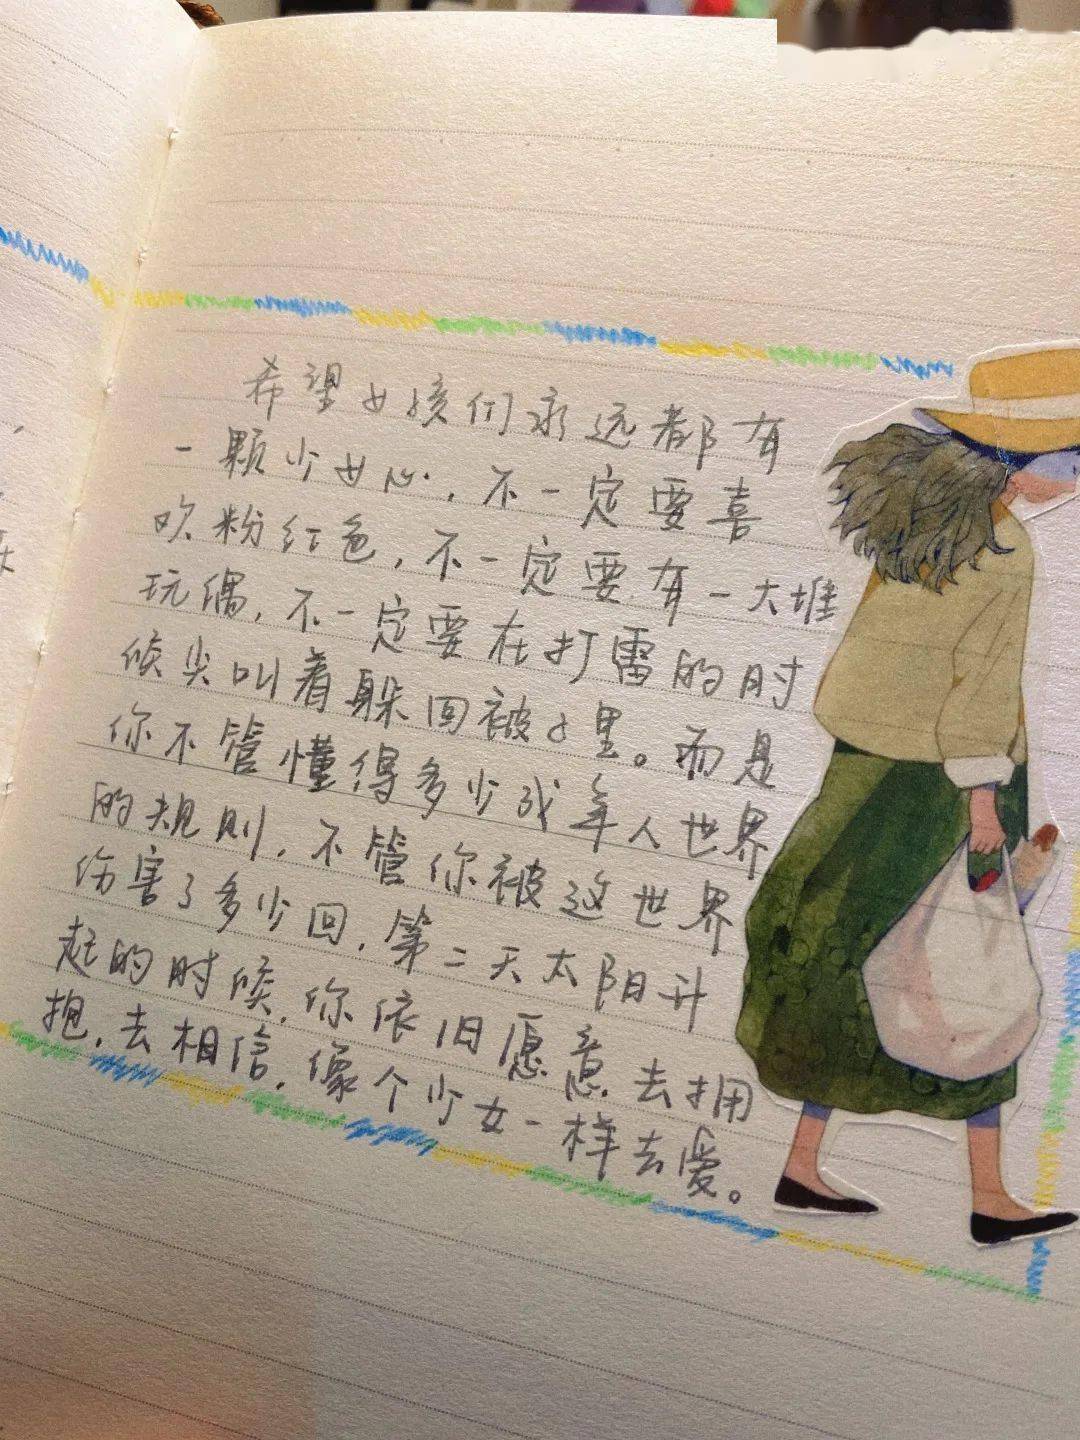 希望女孩们永远都有
一颗少女心，不一定要喜
欢粉红色，不一定要有一大堆
玩偶，不一定要在打雷的时
候尖叫着躲回被子里。而是
你不管懂得多少成年人世界
的规则，不管你被这世界
伤害了多少回，第二天太阳升
起的时候，你依旧愿意去拥
抱，去相信，像个少女一样去爱。